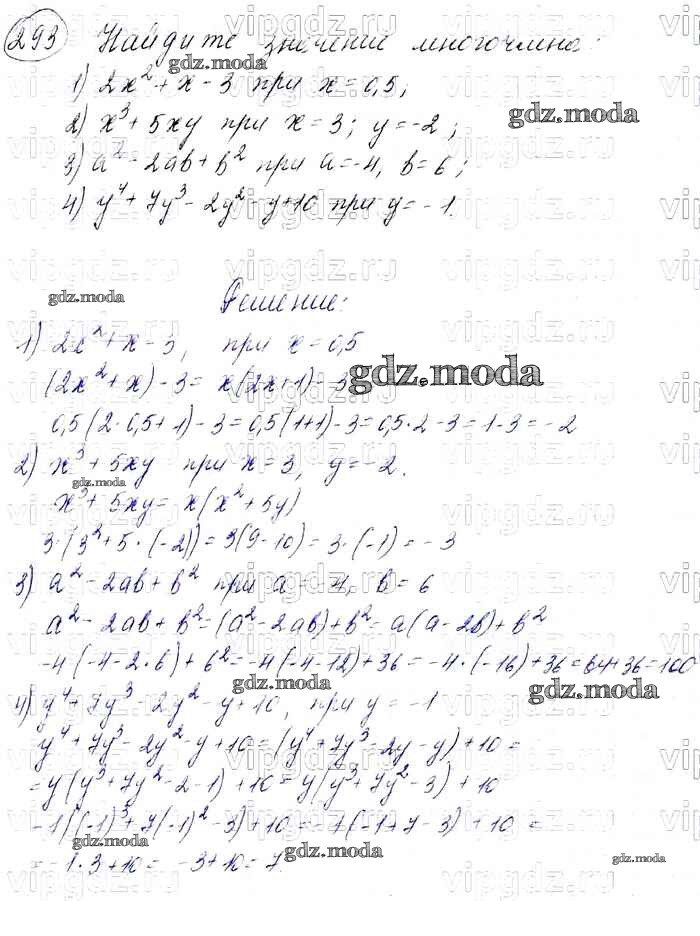 293 Найдите значение многочлена:
1) 2x² + x - 3 при x = 0,5;
2) x³ + 5xy при x = 3; y = -2;
3) a² - 2ab + b² при a = -4, b = 6;
4) y⁴ + 7y³ - 2y² - y + 10 при y = -1.
Решение:
1) 2x² + x - 3, при x = 0,5
(2x² + x) - 3 = x(2x+1) - 3
0,5(2·0,5+1) - 3 = 0,5(1+1) - 3 = 0,5·2 - 3 = 1 - 3 = -2
2) x³ + 5xy при x = 3, y = -2.
x³ + 5xy = x(x² + 5y)
3·(3² + 5·(-2)) = 3(9-10) = 3·(-1) = -3
3) a² - 2ab + b² при a = -4, b = 6
a² - 2ab + b² = (a² - 2ab) + b² = a(a - 2b) + b²
-4(-4-2·6) + 6² = -4(-4-12) + 36 = -4·(-16) + 36 = 64 + 36 = 100
4) y⁴ + 7y³ - 2y² - y + 10, при y = -1
y⁴ + 7y³ - 2y² - y + 10 = (y⁴ + 7y³ - 2y - y) + 10 =
= y(y³ + 7y² - 2 - 1) + 10 = y(y³ + 7y² - 3) + 10
-1((-1)³ + 7(-1)² - 3) + 10 = -1(-1+7-3) + 10 =
= -1·3 + 10 = -3 + 10 = 7.
gdz.moda
vipgdz.ru